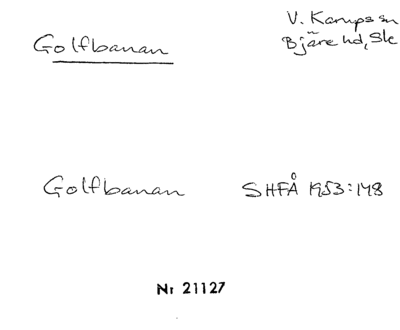 Golfbanan
V. Karups sn
Bjäre hd, Sk
Golfbanan SHFÅ 1953:148
Nr 21127